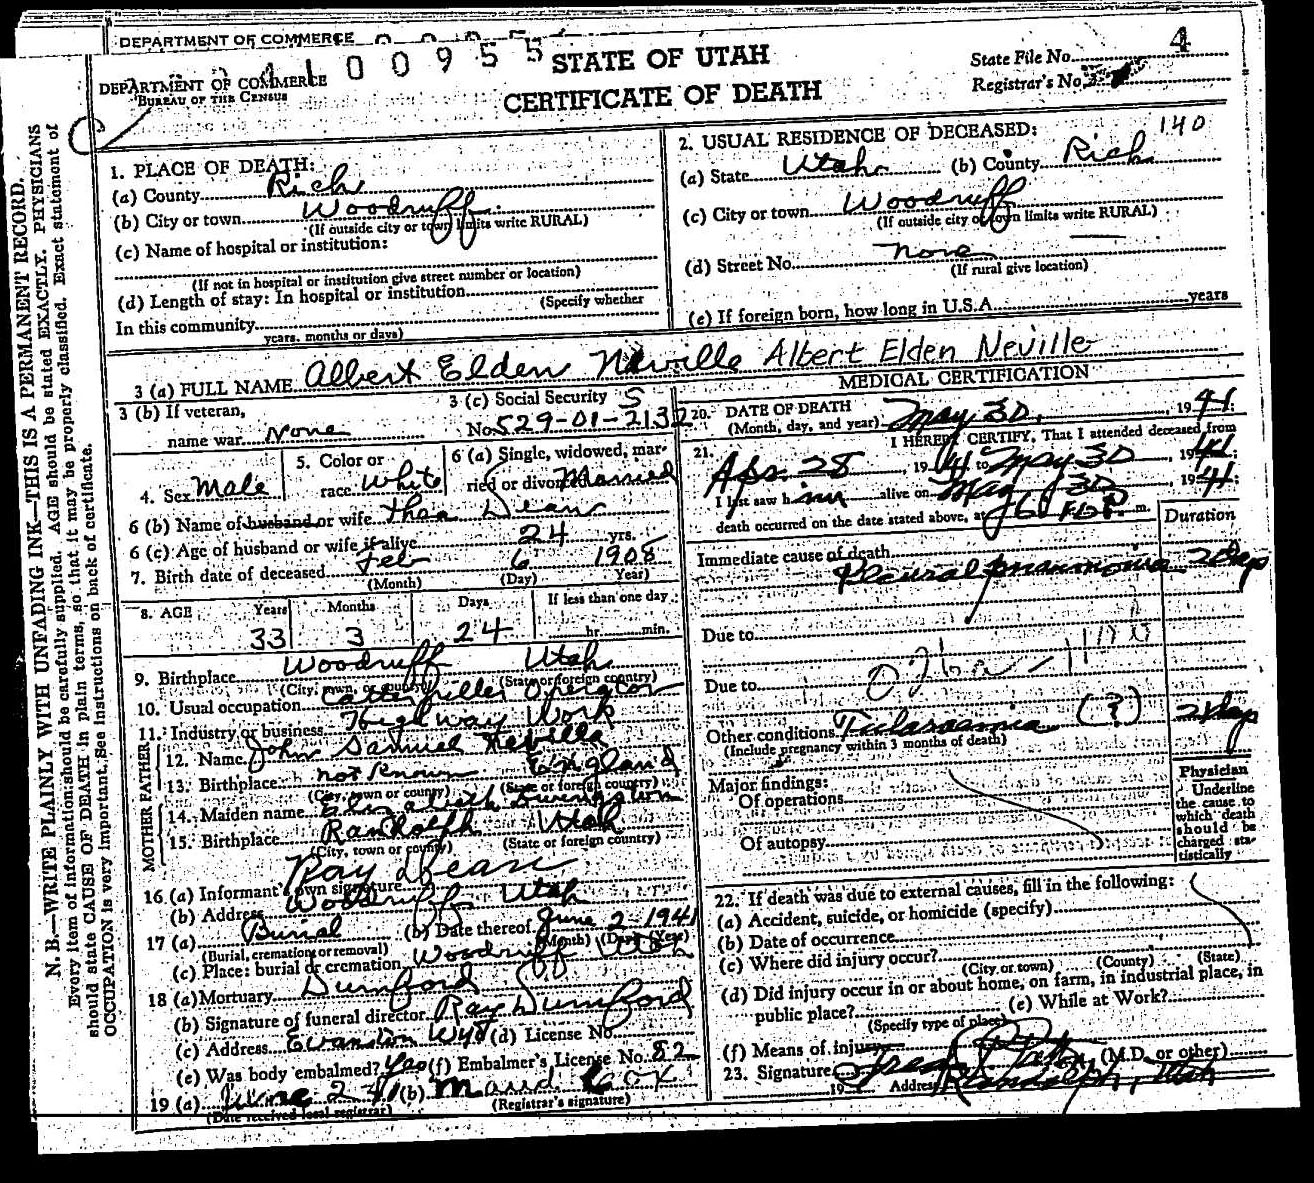 DEPARTMENT OF COMMERCE
4 1 0 0 9 5 5
STATE OF UTAH
State File No. 4
DEPARTMENT OF COMMERCE
BUREAU OF THE CENSUS
CERTIFICATE OF DEATH
Registrar's No.
140
1. PLACE OF DEATH:
(a) County Rich
(b) City or town Woodruff
(If outside city or town limits write RURAL)
(c) Name of hospital or institution:
(If not in hospital or institution give street number or location)
(d) Length of stay: In hospital or institution
(Specify whether
In this community
years, months or days)
2. USUAL RESIDENCE OF DECEASED:
(a) State Utah (b) County Rich
(c) City or town Woodruff
(If outside city or town limits write RURAL)
(d) Street No. None
(If rural give location)
(e) If foreign born, how long in U.S.A. years
3 (a) FULL NAME Albert Elden Neville Albert Elden Neville
3 (b) If veteran,
name war None
3 (c) Social Security S
No. 529-01-2132
4. Sex Male
5. Color or
race White
6 (a) Single, widowed, mar-
ried or divorced Married
6 (b) Name of husband or wife Thea Dean
6 (c) Age of husband or wife if alive 24 yrs.
7. Birth date of deceased Feb 6 1908
(Month) (Day) Year)
8. AGE Years Months Days If less than one day
33 3 24 hr. min.
9. Birthplace Woodruff Utah
(City, town, or county) (State or foreign country)
10. Usual occupation Caterpiller Operator
11. Industry or business Highway Work
FATHER
12. Name John Samuel Neville
13. Birthplace not Known England
(City, town or county) (State or foreign country)
MOTHER
14. Maiden name Elizabeth
15. Birthplace Randolph Utah
(City, town or county) (State or foreign country)
16 (a) Informant's own signature Ray Dean
(b) Address Woodruff Utah
17 (a) Burial (b) Date thereof June 2-1941
(Burial, cremation or removal) (Month) (Day) (Year)
(c) Place: burial or cremation Woodruff Utah
18 (a) Mortuary Dumford
(b) Signature of funeral director Ray Dumford
(c) Address Evanston Wyo (d) License No.
(e) Was body embalmed? Yes (f) Embalmer's License No. 82
19 (a) June 2 41 (b) Maud Cox
(Date received local registrar) (Registrar's signature)
MEDICAL CERTIFICATION
20. DATE OF DEATH
(Month, day, and year) May 30, 1941.
21. I HEREBY CERTIFY, That I attended deceased from
Apr. 28, 1941 to May 30, 1941;
I last saw him alive on May 30, 1941;
death occurred on the date stated above, at m.
Duration
Immediate cause of death
Pleural pneumonia 2 days
Due to
Due to
Other conditions Tularaemia (?)
(Include pregnancy within 3 months of death)
Major findings:
Of operations
Of autopsy
Physician
Underline
the cause to
which death
should be
charged sta-
tistically
22. If death was due to external causes, fill in the following:
(a) Accident, suicide, or homicide (specify)
(b) Date of occurrence
(c) Where did injury occur?
(City or town) (County) (State)
(d) Did injury occur in or about home, on farm, in industrial place, in
public place? (e) While at Work?
(Specify type of place)
(f) Means of injury
23. Signature (M.D. or other)
19 Address Randolph, Utah
N. B.—WRITE PLAINLY WITH UNFADING INK—THIS IS A PERMANENT RECORD.
Every item of information should be carefully supplied. AGE should be stated EXACTLY. PHYSICIANS
should state CAUSE OF DEATH in plain terms, so that it may be properly classified. Exact statement of
OCCUPATION is very important. See instructions on back of certificate.